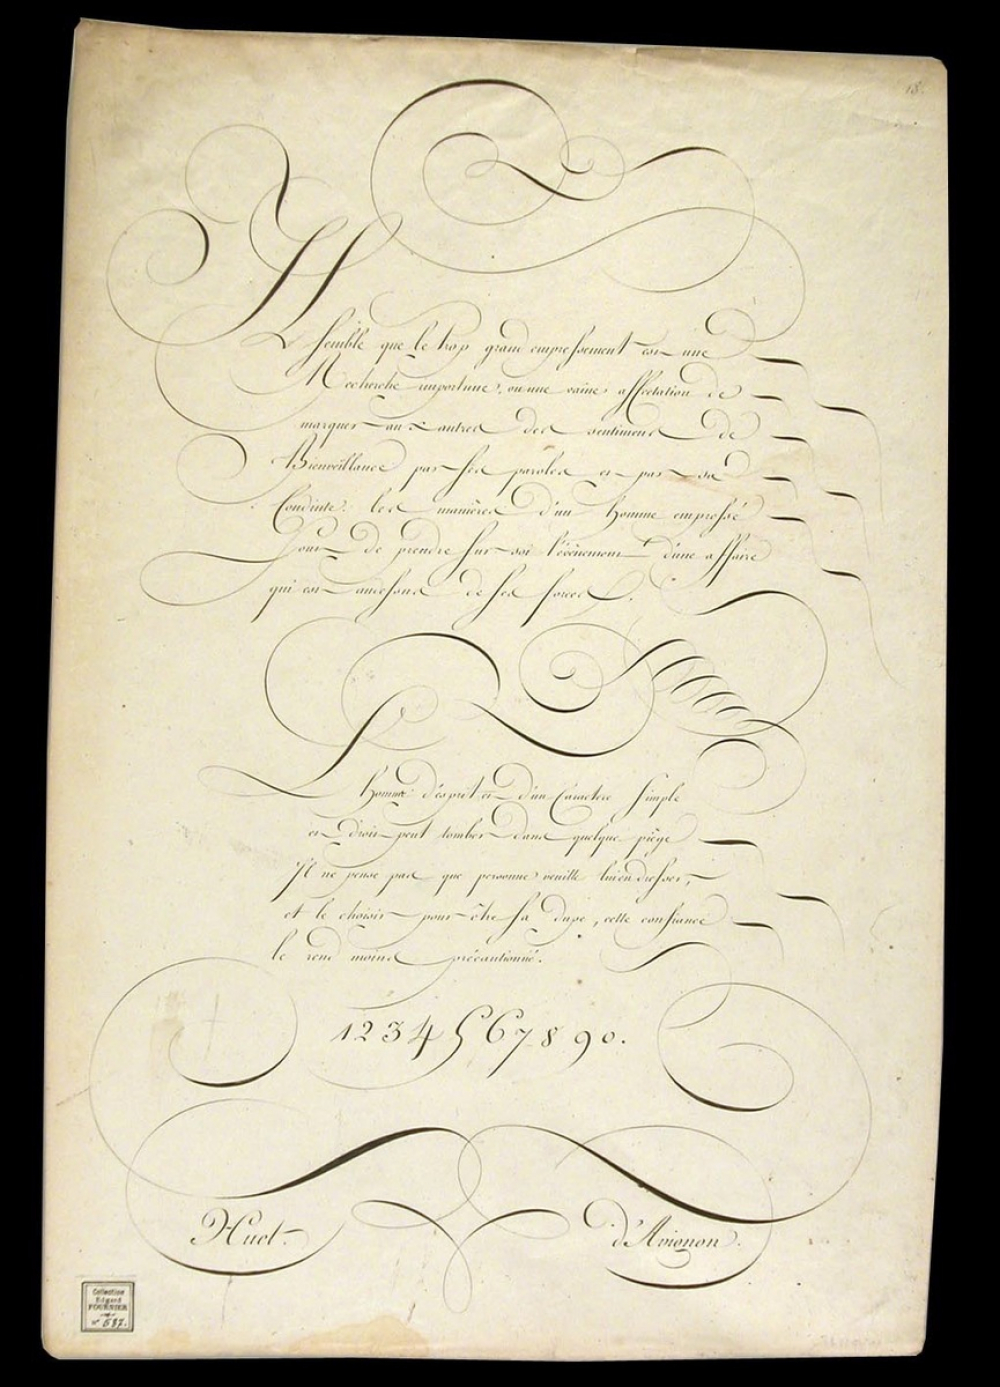 18.
Il semble que le trop grand empressement est une
Recherche importune, ou une vaine affectation de
marquer aux autres des sentimens de
Bienveillance par ses paroles et par sa
Conduite. les manières d'un homme empressé
Sont de prendre sur soi l'événement d'une affaire
qui est audessus de ses forces.
L'homme d'esprit et d'un Caractere simple
et droit peut tomber dans quelque piège
Il ne pense pas que personne veuille lui en dresser,
et le choisir pour être sa dupe, cette confiance
le rend moins précautionné.
1234567890.
Huet d'Avignon.
Collection
Edgard
FOURNIER
n° 587.